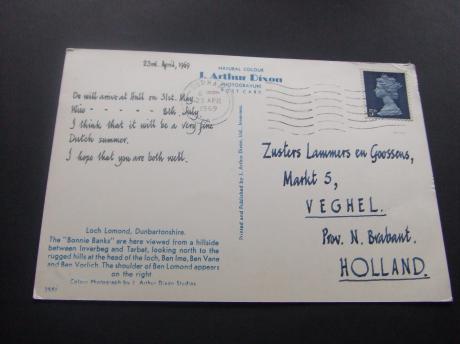 23rd. April, 1969
NATURAL COLOUR
J. Arthur Dixon
PHOTOGRAVURE
POST CARD
23 APR
1969
5D
We will arrive at Hull on 31st. May.
8th. July.
I think that it will be a very fine
Dutch summer.
I hope that you are both well.
Printed and Published by J. Arthur Dixon, Ltd.
Zusters Lammers en Goossens,
Markt 5,
VEGHEL.
Prov. N. Brabant.
HOLLAND.
Loch Lomond, Dunbartonshire.
The "Bonnie Banks" are here viewed from a hillside
between Inverbeg and Tarbet, looking north to the
rugged hills at the head of the loch, Ben Ime, Ben Vane
and Ben Vorlich. The shoulder of Ben Lomond appears
on the right
Colour Photograph by J. Arthur Dixon Studios